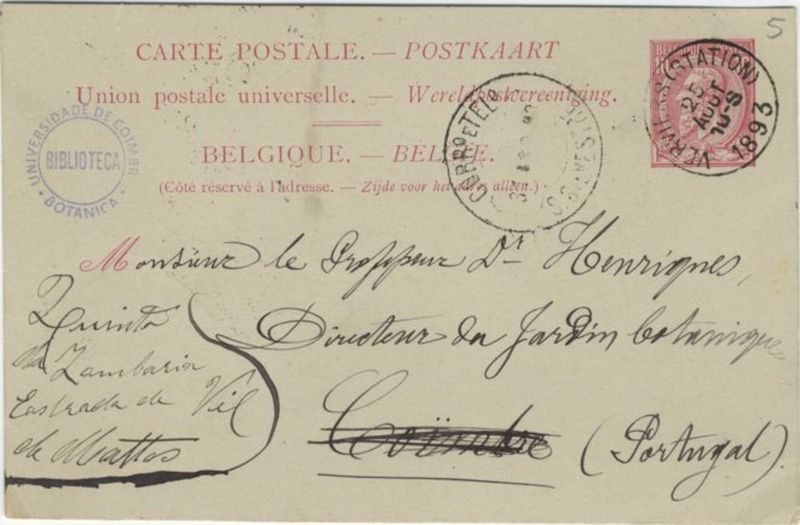 5
CARTE POSTALE. — POSTKAART
Union postale universelle. — Wereldpostvereeniging.
BELGIQUE. — BELGIË.
(Côté réservé à l'adresse. — Zijde voor het adres alleen.)
VERVIERS (STATION)
25
AOUT
10-S
1893
CORREIO E TELEG
UNIVERSIDADE DE COIMBRA
BIBLIOTECA
BOTANICA
Monsieur le Professeur Dr Henriques,
Directeur du Jardin botanique
Coïmbre (Portugal).
Quinta
da Zombaria
Estrada de Vil
de Mattos